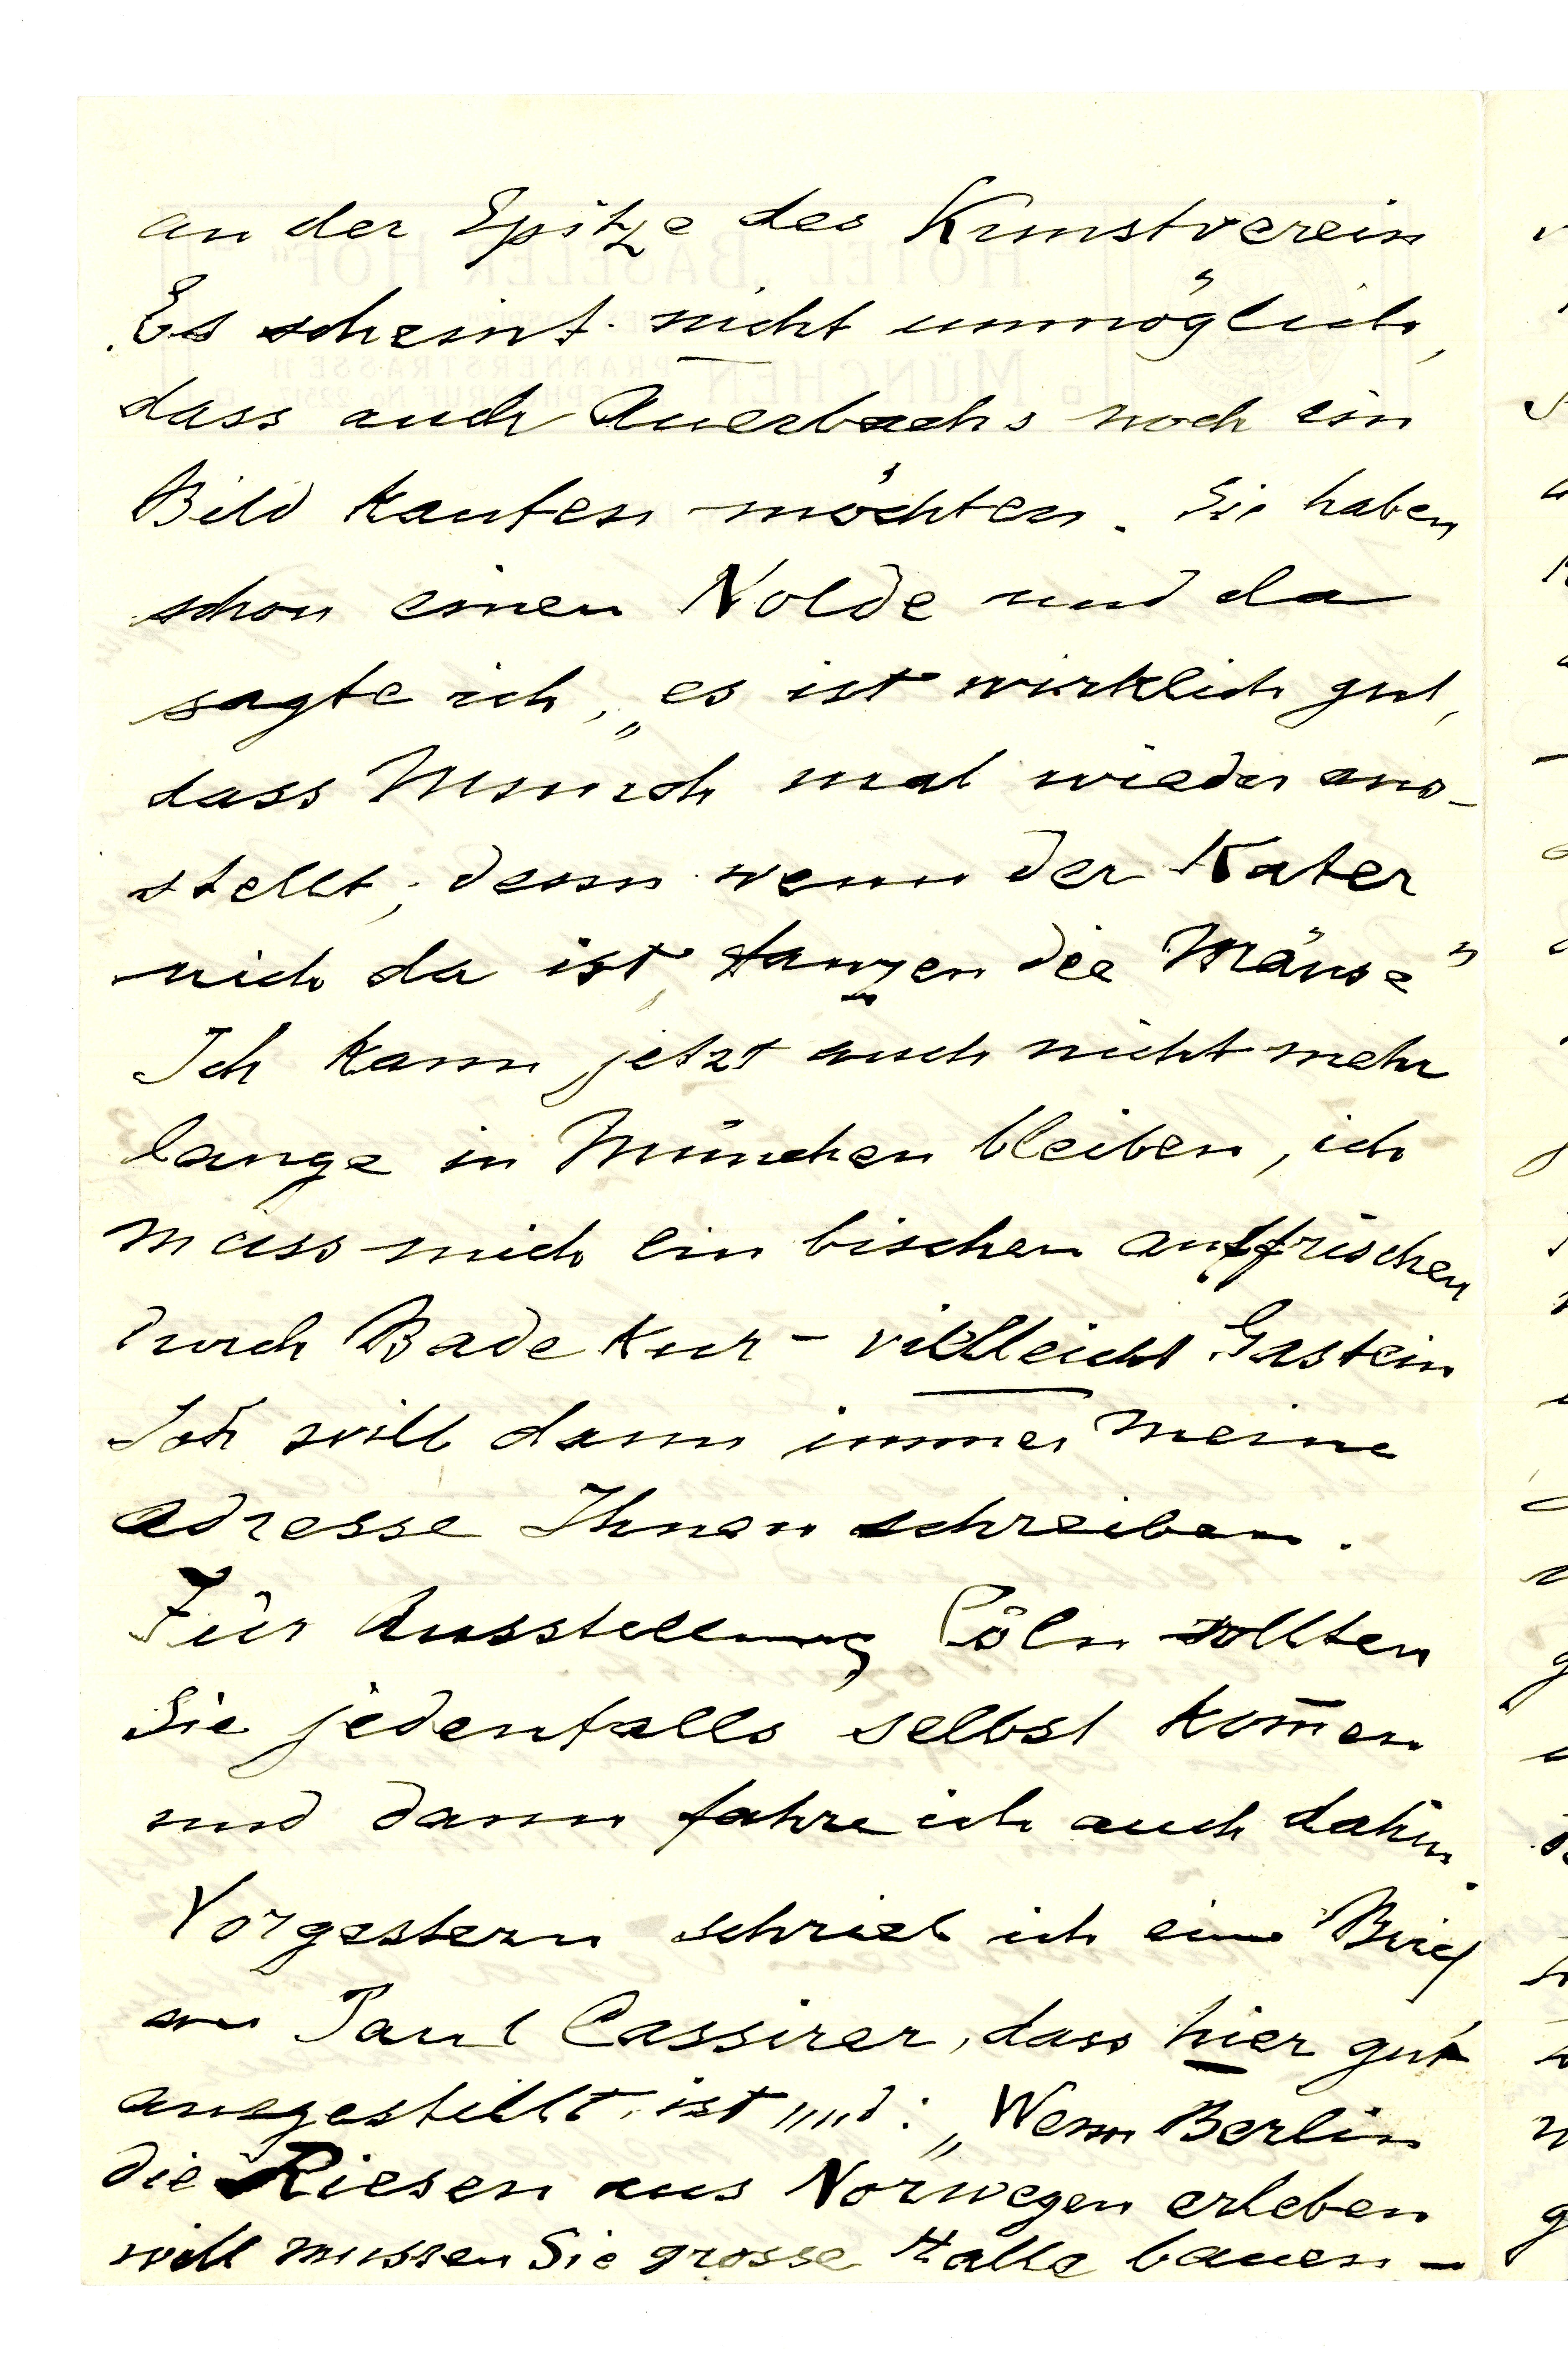 an der Spitze des Kunstverein
Es scheint nicht unmöglich,
dass auch Auerbachs noch ein
Bild kaufen möchten. Sie haben
schon einen Nolde und da
sagte ich, „es ist wirklich gut,
dass Munch mal wieder aus-
stellt; denn wenn der Kater
nich da ist, tanzen die Mäuse"
Ich kann jetzt auch nicht mehr
lange in München bleiben, ich
muss mich ein bischen auffrischen
durch Bade Kur – villleicht Gastein
Ich will dann immer meine
Adresse Ihnen schreiben.
Für Ausstellung Cöln sollten
Sie jedenfalls selbst kom̄en
und dann fahre ich auch dahin.
Vorgestern schrieb ich eine Brief
an Paul Cassirer, dass hier gut
ausgestellt ist und: „Wenn Berlin
die Riesen aus Norwegen erleben
will mussen Sie grosse Halle bauen –
HOTEL „BASELER HOF"
MÜNCHEN
PRANNERSTRASSE 11